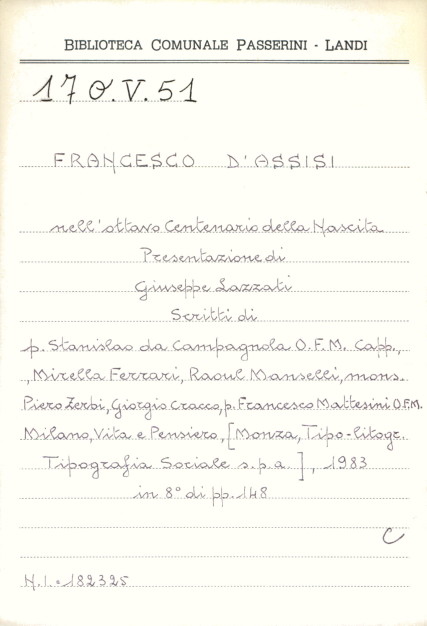 BIBLIOTECA COMUNALE PASSERINI - LANDI
170.V.51
FRANCESCO D'ASSISI
nell'ottavo Centenario della Nascita
Presentazione di
Giuseppe Lazzati
Scritti di
p. Stanislao da Campagnola O.F.M. Capp.,
, Mirella Ferrari, Raoul Manselli, mons.
Piero Zerbi, Giorgio Cracco, p. Francesco Mattesini O.F.M.
Milano, Vita e Pensiero, [Monza, Tipo-litogr.
Tipografia Sociale s.p.a.], 1983
in 8° di pp. 148
C
N.I. 182325